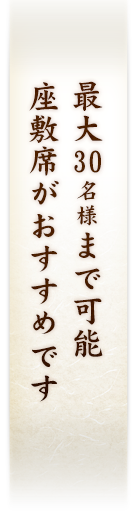 最大30名様まで可能
座敷席がおすすめです